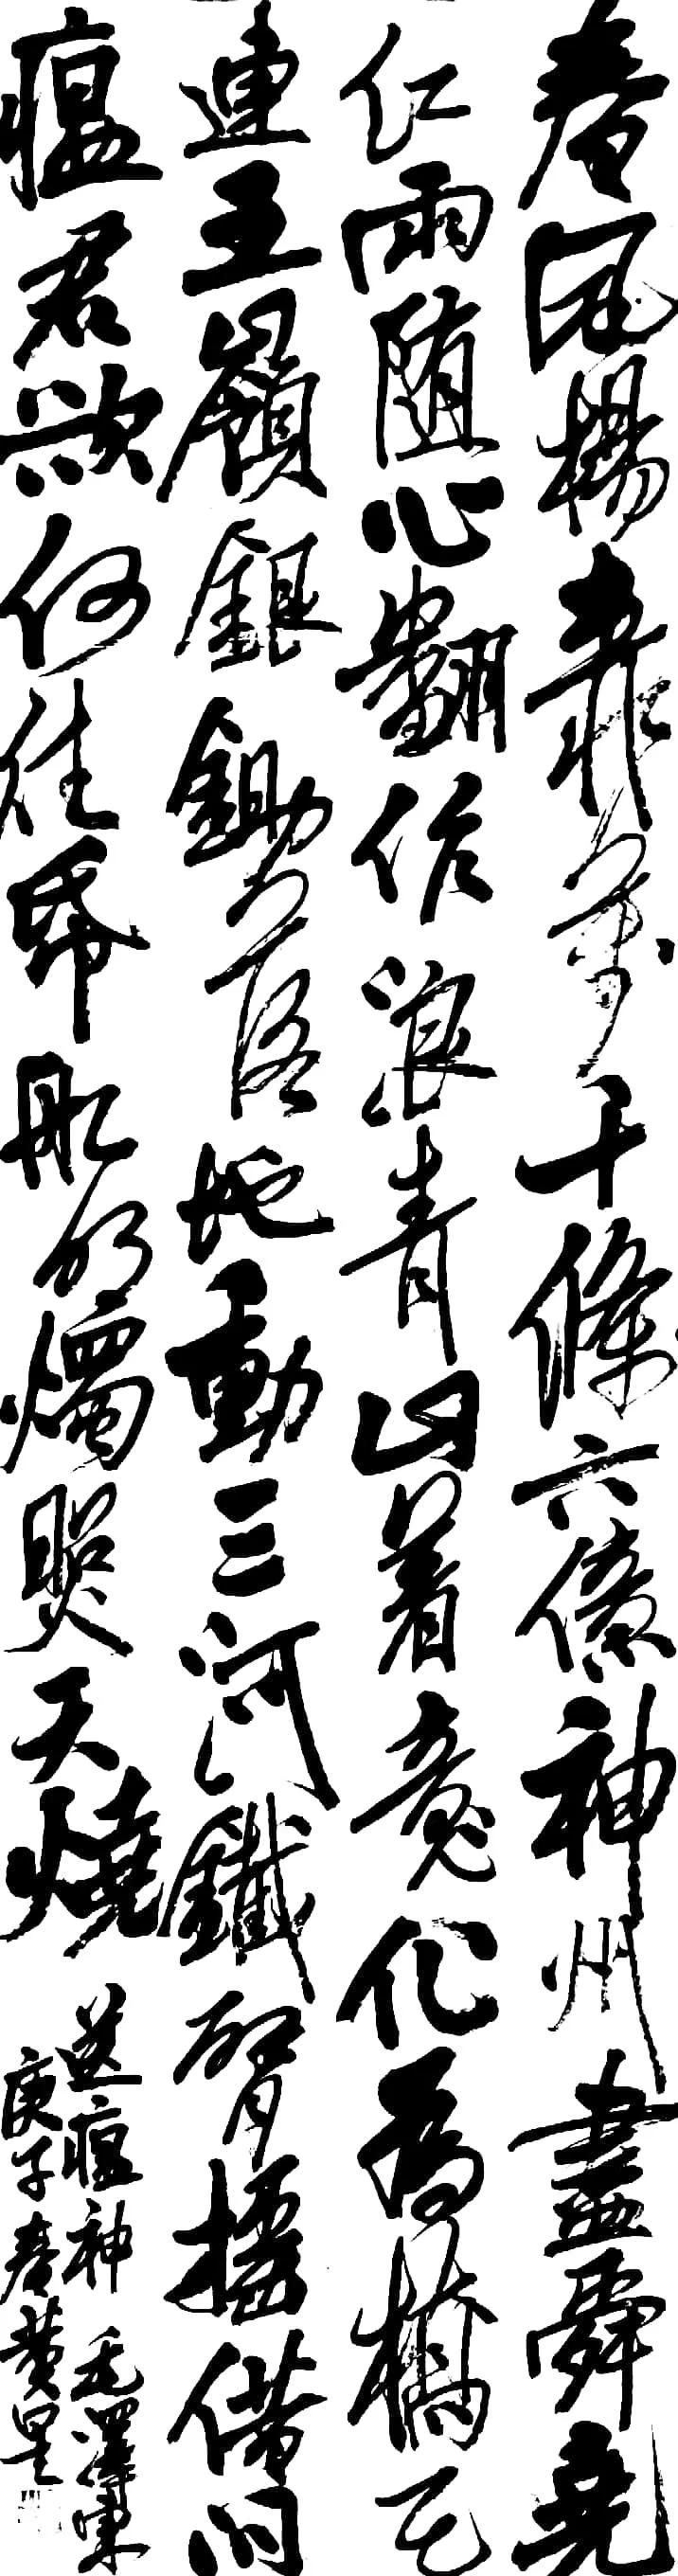 春風楊柳萬千條六億神州盡舜堯
紅雨隨心翻作浪青山着意化為橋天
連五嶺銀鋤落地動三河鐵臂搖借問
瘟君欲何往紙船明燭照天燒
送瘟神 毛澤東
庚子春黃昊